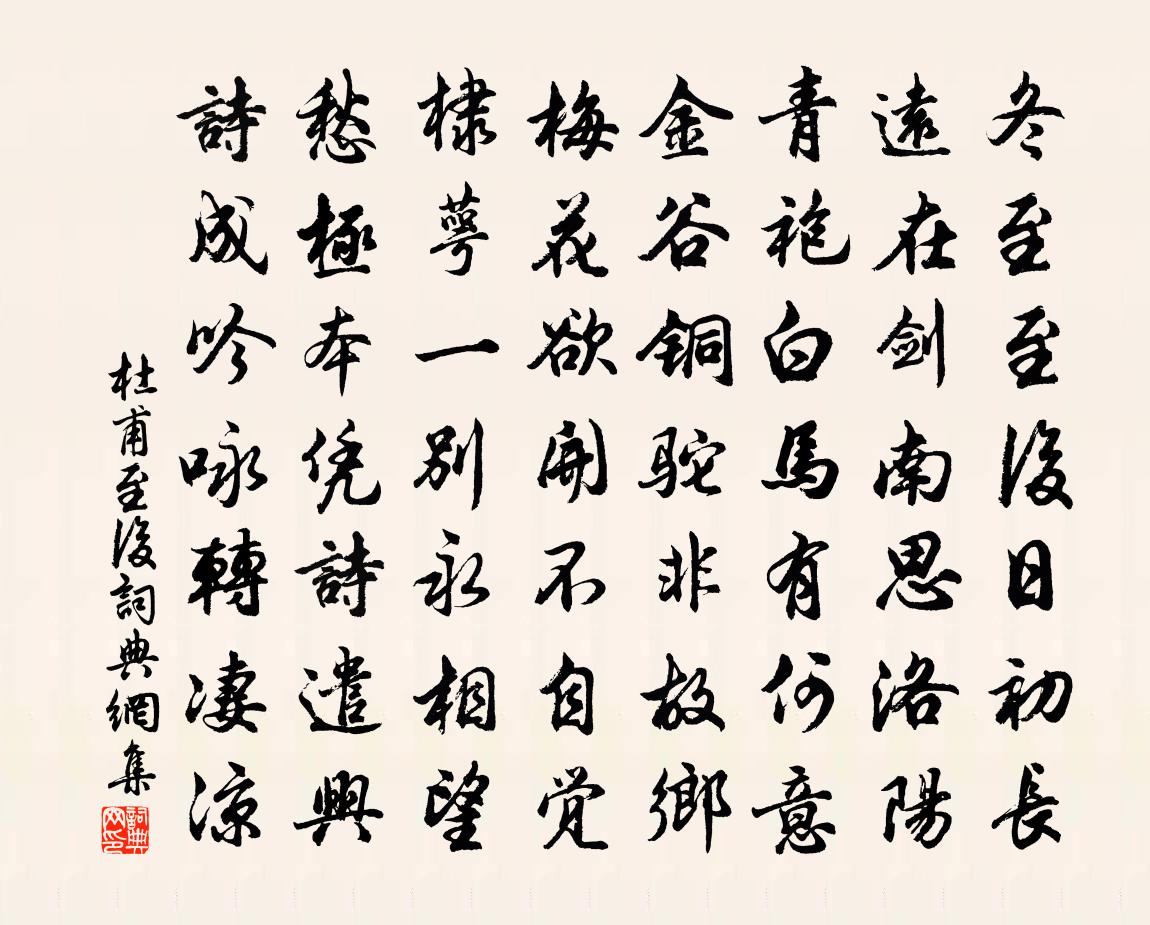 冬至至後日初長
遠在剑南思洛陽
青袍白馬有何意
金谷铜駝非故鄉
梅花欲開不自觉
棣萼一别永相望
愁極本凭詩遣興
詩成吟咏轉凄凉
杜甫至後詞典網集
詞典网印